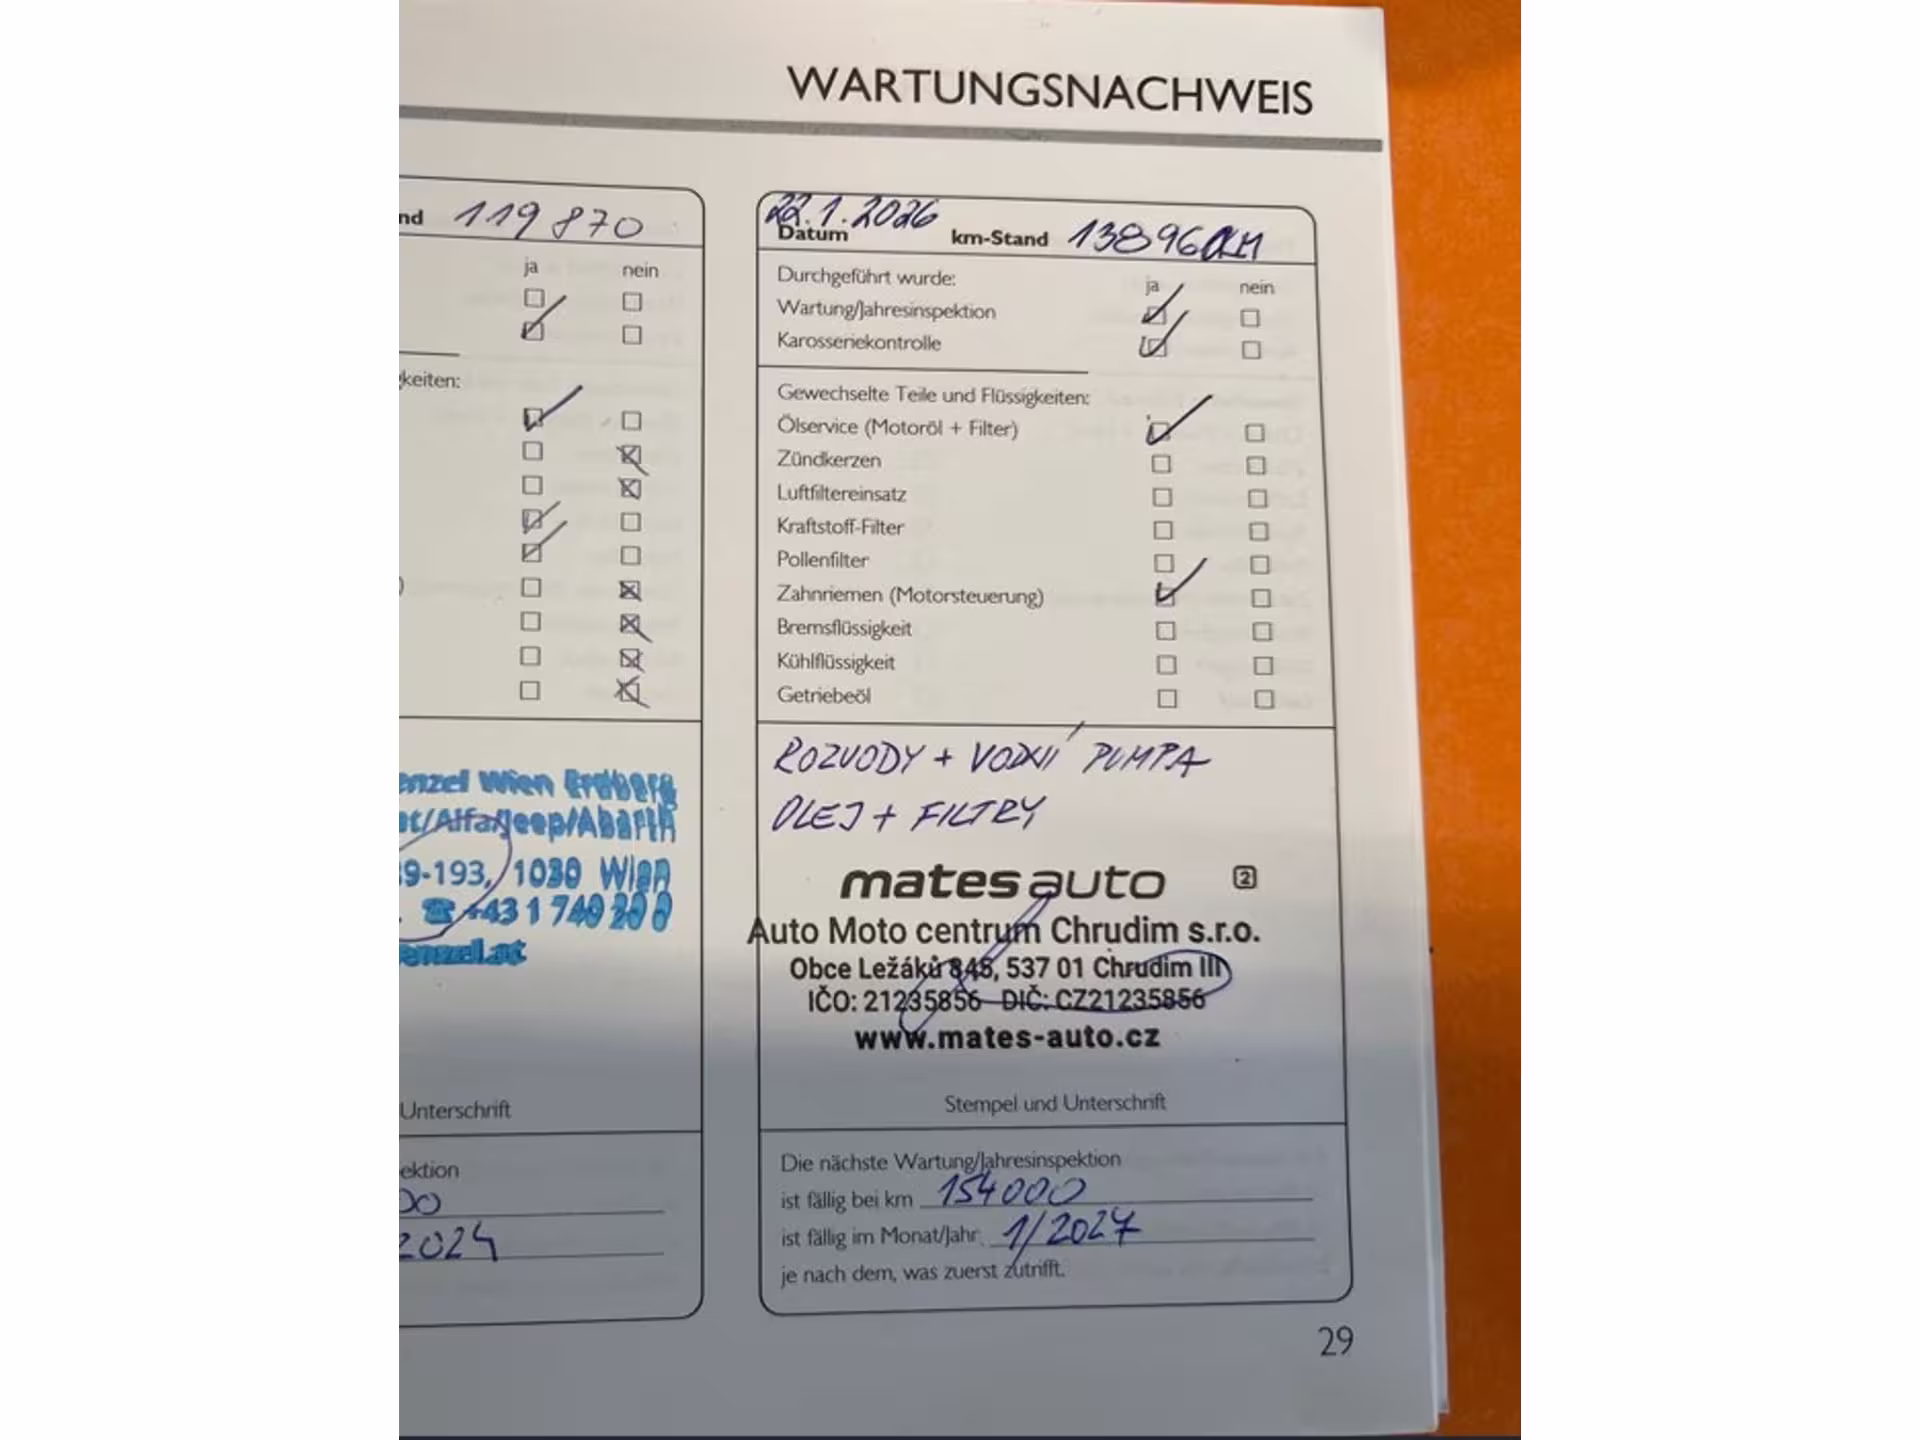 WARTUNGSNACHWEIS
nd 119 870
ja nein
gkeiten:
)
enzel Wien Erdberg
at/Alfa/Jeep/Abarth
9-193, 1030 Wien
☎ +43 1 740 20 0
enzel.at
Unterschrift
ektion
00
2024
22.1.2026
Datum km-Stand 138960KM
Durchgeführt wurde: ja nein
Wartung/Jahresinspektion
Karosseriekontrolle
Gewechselte Teile und Flüssigkeiten:
Ölservice (Motoröl + Filter)
Zündkerzen
Luftfiltereinsatz
Kraftstoff-Filter
Pollenfilter
Zahnriemen (Motorsteuerung)
Bremsflüssigkeit
Kühlflüssigkeit
Getriebeöl
ROZVODY + VODNÍ PUMPA
OLEJ + FILTRY
mates auto 2
Auto Moto centrum Chrudim s.r.o.
Obce Ležáků 848, 537 01 Chrudim III
IČO: 21235856 DIČ: CZ21235856
www.mates-auto.cz
Stempel und Unterschrift
Die nächste Wartung/Jahresinspektion
ist fällig bei km 154000
ist fällig im Monat/Jahr 1/2027
je nach dem, was zuerst zutrifft.
29